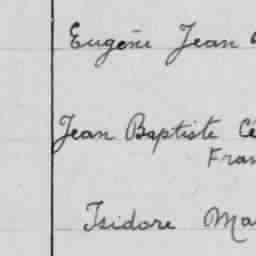 Eugène Jean
Jean Baptiste Cé
Fran
Isidore Ma